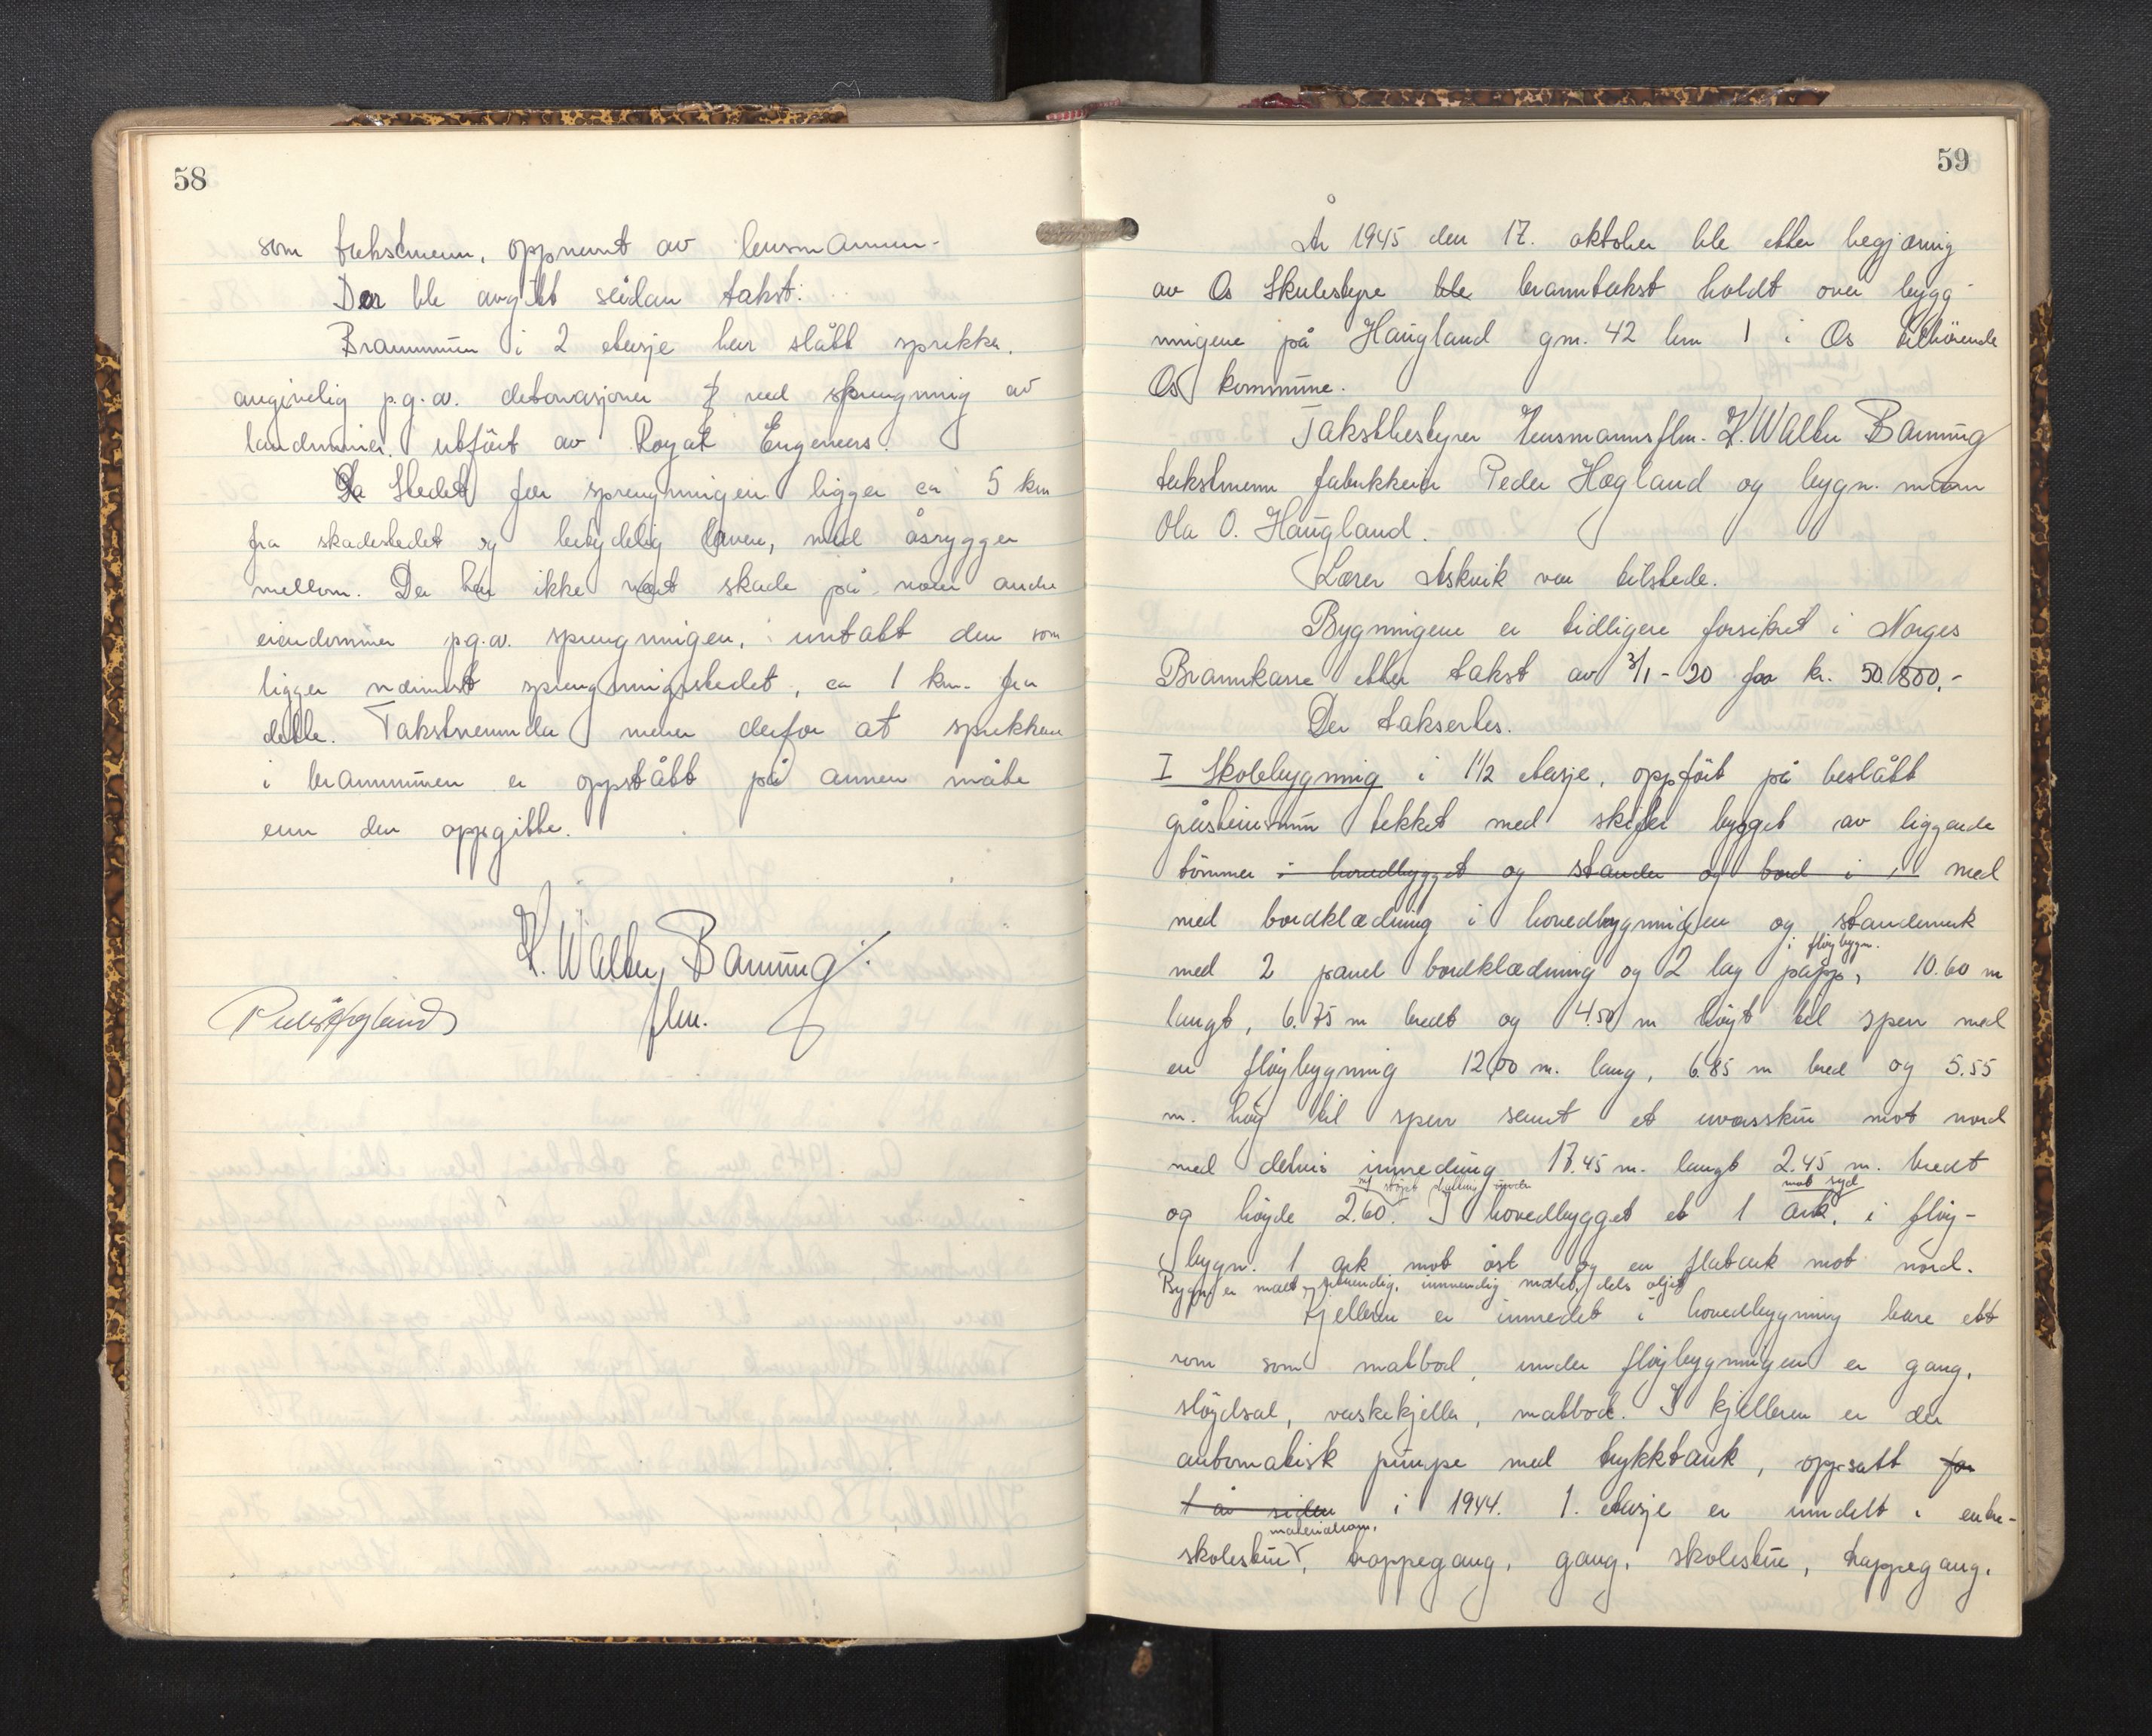 58
som takstmenn, oppnemt av lensmannen.
Der ble avgitt sådan takst:
Brannmuren i 2 etasje har slått sprekker,
angivelig p.g.av. detonasjoner ved sprengning av
landminer, utført av Royal Engeneers.
Stedet for sprengningen ligger ca 5 km
fra skadestedet og betydelig lavere, med åsrygger
mellom. Der har ikke vært skade på noen andre
eiendommer p.g.av. sprengningen, untatt den som
ligger nærmest sprengningsstedet, ca 1 km. fra
dette. Takstnemnda mener derfor at sprekken
i brannmuren er oppstått på annen måte
enn den oppgitte.
K. Walter Barning
flm.
59
År 1945 den 17. oktober ble etter begjæring
av Os Skulestyre ble branntakst holdt over bygg-
ningene på Haugland gm. 42 bm 1 i Os tilhörende
Os kommune.
Takstbestyrer lensmannsflm. K. Walter Barning
takstmenn fabrikkeier Peder Hogland og bygn. mann
Ola O. Haugland.
Lærer Askvik var tilstede.
Bygningene er tidligere forsikret i Norges
Brannkasse etter takst av 3/1-20 for kr. 50.800,-
Der takserles.
I Skolebygning i 1 1/2 etasje, oppfört på beslått
gråsteinsmur tekket med skifer bygget av liggende
tömmer i hovedbygget og stander og bord i med
med bordklædning i hovedbygningen og standerverk
i fløybygn.
med 2 panel bordklædning og 2 lag papp, 10.60 m
langt, 6.75 m bredt og 4.50 m höyt til sperr med
en flöybygning 12,00 m. lang, 6.85 m bred og 5.55
m. höy til sperr samt et uværsskur mot nord
med delvis innredning 17.45 m. langt 2.45 m. bredt
mot syd
og höyde 2.60. I hovedbygget et 1 ark, i flöy-
bygn. 1 ark mot öst og en flatark mot nord.
Bygn. er malt utvendig, innvendig malt, dels oljet
Kjelleren er innredet i hovedbygning bare ett
rom som matbod, under flöybygningen er gang,
slöydsal, vaskekjeller, matbod. I kjelleren er der
automatisk pumpe med trykktank, oppsatt for
1 år siden i 1944. 1. etasje er inndelt i en
materialrom,
skolestue, trappegang, gang, skolestue, trappegang,